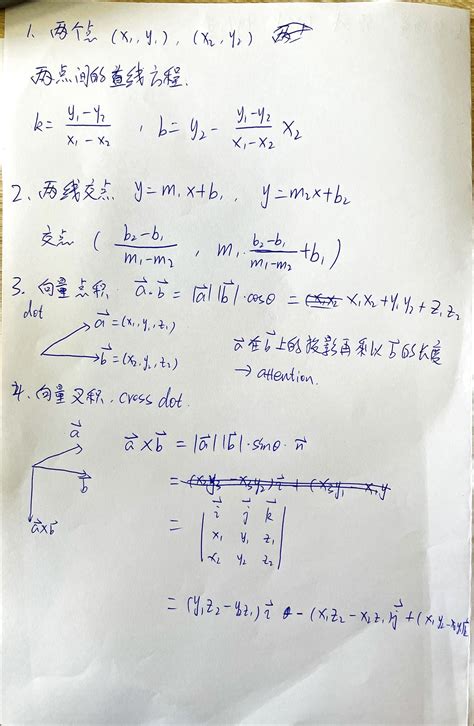 1. 两个点 (x₁, y₁), (x₂, y₂)
两点间的直线方程.
k = \frac{y₁-y₂}{x₁-x₂} , b = y₂ - \frac{y₁-y₂}{x₁-x₂} x₂
2. 两线交点 y=m₁x+b₁, y=m₂x+b₂
交点 ( \frac{b₂-b₁}{m₁-m₂} , m₁·\frac{b₂-b₁}{m₁-m₂}+b₁ )
3. 向量点积 \vec{a}·\vec{b} = |\vec{a}||\vec{b}|·cosθ = x₁x₂+y₁y₂+z₁z₂
dot
\vec{a}=(x₁,y₁,z₁)
\vec{b}=(x₂,y₂,z₂)
\vec{a}在\vec{b}上的投影再乘以\vec{b}的长度
→ attention.
4. 向量叉积. cross dot.
\vec{a}
\vec{b}
\vec{a}x\vec{b}
\vec{a} × \vec{b} = |\vec{a}||\vec{b}|·sinθ·\vec{n}
= | \vec{i} \vec{j} \vec{k}
x₁ y₁ z₁
x₂ y₂ z₂ |
= (y₁z₂-y₂z₁)\vec{i} - (x₁z₂-x₂z₁)\vec{j} + (x₁y₂-x₂y₁)\vec{k}